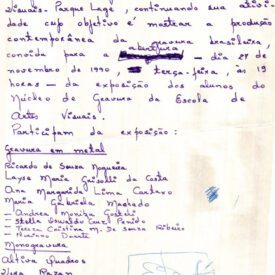 Visuais - Parque Lage, continuando sua ativi-
dade cujo objetivo é mostrar a produção
contemporânea da gravura brasileira,
convida para a abertura — dia 27
novembro de 1990, terça-feira, às 19
horas — da exposição dos alunos do
Núcleo de Gravura da Escola de
Artes Visuais.
Participam da exposição:
Gravura em metal
Ricardo de Souza Nogueira
Layse Maria Grisolli da Costa
Ana Margarida Lima Cartaxo
Maria Gabriela Machado
- Andrea Moniza
- Stella Oswaldo Cruz Penido
- Teresa Cristina M. De Souza Ribeiro
- Mariano Duarte
Monogravura
Altiva Quadros
Vera